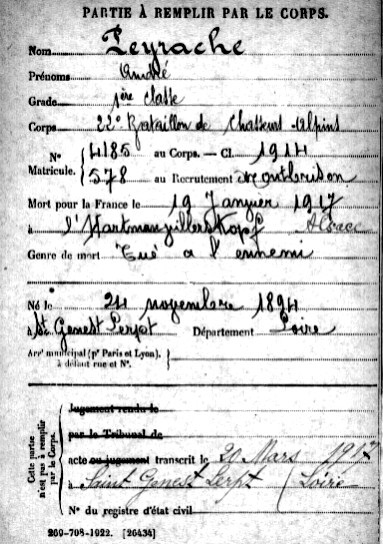 PARTIE À REMPLIR PAR LE CORPS.
Nom Peyrache
Prénoms André
Grade 1ère classe
Corps 22e Bataillon de Chasseurs Alpins
N° 4185 au Corps. — Cl. 1914
Matricule. 578 au Recrutement Montbrison
Mort pour la France le 19 Janvier 1917
à l'Hartmanvillerskopf Alsace
Genre de mort Tué a l'ennemi
Né le 24 novembre 1894
à St Genest Lerpt Département Loire
Arrt municipal (pr Paris et Lyon), à défaut rue et N°.
Cette partie n'est pas à remplir par le Corps.
Jugement rendu le
par le Tribunal de
acte ou jugement transcrit le 20 Mars 1917
à Saint Genest Lerpt (Loire
N° du registre d'état civil
269-708-1922. [26434]